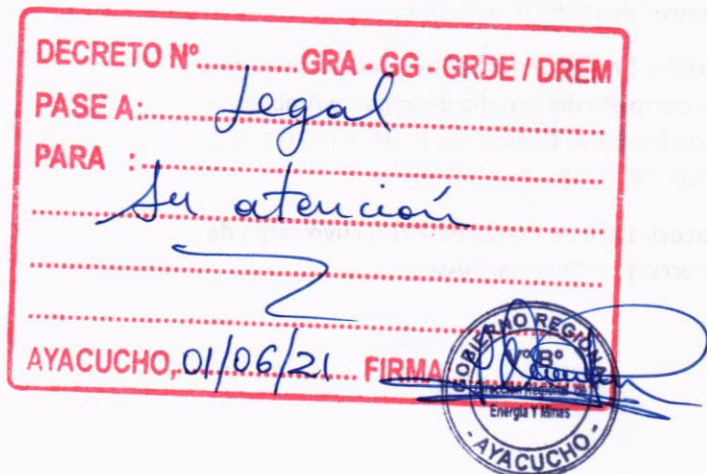 DECRETO Nº............GRA - GG - GRDE / DREM
PASE A: Legal
PARA :
Su atención
AYACUCHO, 01/06/21 FIRMA
GOBIERNO REGIONAL
VºBº
Energía Y Minas
- AYACUCHO -